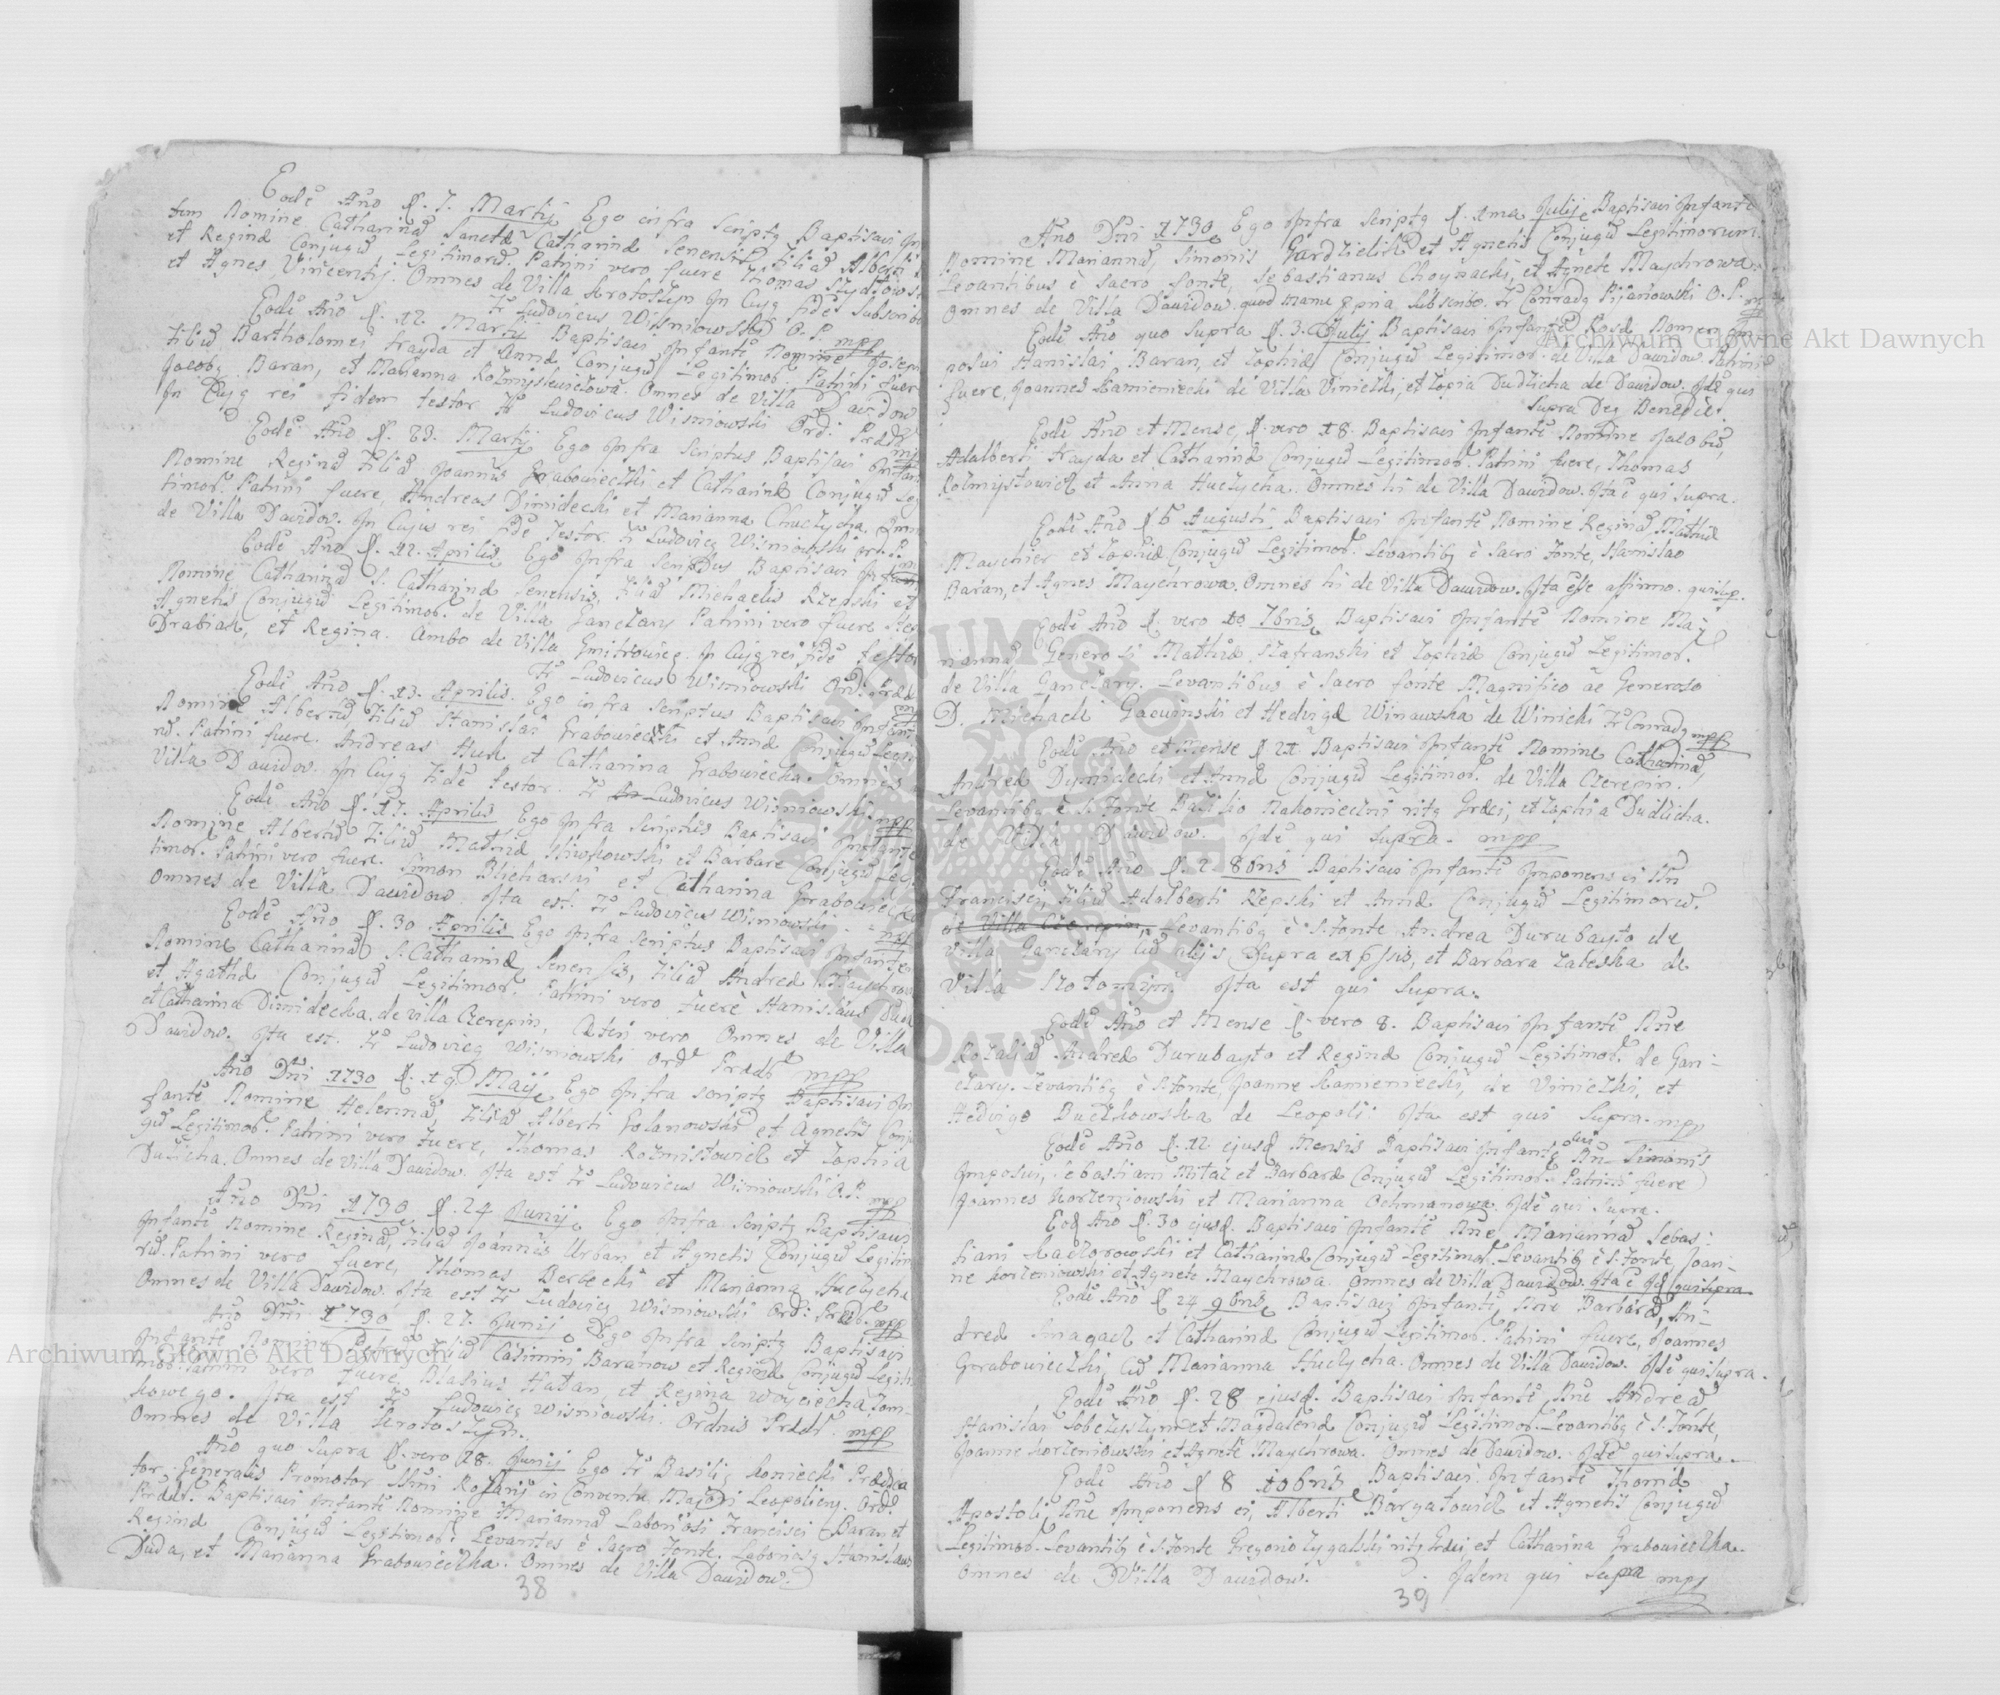 Eodē Año d. 7. Martij Ego infra scriptq Baptisavi In
tem Nomine Catharinā Sanctæ Catharinæ Senensis filiā Alberti
et Reginæ Conjugū Legitimorū. Patrini vero fuere Thomas
et Agnes Vincentij. Omnes de Villa Krotoszyn In Cujq fidē Subscribo
Fr Ludovicus Wisniowski O. P. mpp
Eodē Año d. 12. Martij Baptisavi Infantē Nomine Joseph
filiū Bartholomei Frayda et Annæ Conjugū Legitimor. Patrini fuer
Jacobq Baran, et Marianna Kozmysłewiczowa. Omnes de Villa Dawidow
In Cujq rei fidem testor Fr Ludovicus Wisniowski Ord: Prædic
Eodē Año d. 23. Martij Ego Infra Scriptus Baptisavi Infan
Nomine Reginā Filiā Joannis Grabowiecki et Catharinæ Conjugū Le
timor. Patrini fuere, Andreas Dimidecki et Marianna Chuczycha, Omn
de Villa Dawidow. In Cujus rei fidē Testor. Fr Ludovicq Wisniowski Ord. P.
Eodē Año d. 12. Aprilis Ego Infra Scriptus Baptisavi Infan
Nomine Catharinā S. Catharinæ Senensis, filiā Michaelis Rzepski et
Agnetis Conjugū Legitimor. de Villa Ganczary Patrini vero fuere
Drabiak, et Regina. Ambo de Villa Gmitrowicq. In Cujq rei fidē testor
Fr Ludovicus Wisniowski Ord: Præd
Eodē Año d. 13. Aprilis. Ego infra Scriptus Baptisavi Infant
Nomine Albertū filiū Stanislai Grabowiecki et Annæ Conjugū Legit
rū. Patrini fuere. Andreas Huk et Catharina Grabowiecka. Omnes
Villa Dawidow. In Cujq fidē testor. Fr Ludovicus Wisniowski mpp
Eodē Año d. 17. Aprilis Ego Infra Scriptus Baptisavi Infante
Nomine Albertū filiū Mathiæ et Barbare Conjugū Leg
timor. Patrini vero fuere. Simon Blicharski et Catharina Grabowiecka
Omnes de Villa Dawidow. Ita est. Fr Ludovicus Wisniowski mpp
Eodē Año d. 30 Aprilis Ego Infra Scriptus Baptisavi Infante
Nomine Catharinā S. Catharinæ Senensis, filiā Andreæ Maychrow
et Agathæ Conjugū Legitimor. Patrini vero fuere Stanislaus Dud
et Catharina Dimidecka de villa Czerepin, Cæteri vero Omnes de Villa
Dawidow. Ita est. Fr Ludovicq Wisniowski Ord Prædic mpp
Año Dñi 1730 d. 19 Maij Ego Infra scriptq Baptisavi In
fantē Nomine Helennā, filiā Alberti Golanowski et Agnetis Conju
gū Legitimor. Patrini vero fuere, Thomas Kozmistowicz et Zophia
Dudzicha. Omnes de Villa Dawidow. Ita est Fr Ludovicus Wisniowski O.P. mpp
Año Dñi 1730 d. 24 Junij Ego Infra Scriptq Baptisavi
Infantē Nomine Reginā, filiā Joannis Urban et Agnetis Conjugū Legitim
rū. Patrini vero fuere, Thomas Berbecki et Marianna Huczycha
Omnes de Villa Dawidow. Ita est Fr Ludovicq Wisniowski Ord: Prædic. mpp
Año Dñi 1730 d. 27. Junij Ego Infra Scriptq Baptisavi
Infantē Nomine Petrū filiū Casimiri Baranow et Reginæ Conjugū Legiti
mor. Patrini vero fuere, Blasius Hatan, et Regina Woyciecha Jom
kowego. Ita est Fr Ludovicq Wisniowski. Ordinis Prædic. mpp
Omnes de Villa Krotoszyn.
Año quo Supra d. vero 28. Junij Ego Fr Basiliq Koniecki Prædica
tor Generalis Promotor SSmi Rosarij in Conventu Majori Leopoliens. Ord.
Prædic. Baptisavi Infantē Nomine Mariannā Laboriosi Francisci Baran et
Reginæ Conjugū Legitimor. Levantes è Sacro Fonte. Laboriosq Stanislaus
Duda, et Marianna Grabowieczka. Omnes de Villa Dawidow.
38
Año Dñi 1730 Ego Infra Scriptq d. 1ma Julij Baptisavi Infantē
Nomine Mariannā, Simonis et Agnetis Conjugū Legitimorum.
Levantibus è Sacro fonte, Sebastianus Choynacki, et Agnete Maychrowa
Omnes de Villa Dawidow. quod manu ppria Subscribo. Fr Conradq Pijanowski O. P. mpp
Eodē Año quo Supra d. 3. Julij Baptisavi Infantē Rosæ Nomen im
posui Stanislai Baran, et Zophiæ Conjugū Legitimor. de Villa Dawidow. Patrini
fuere, Joannes Kamieniecki de Villa Winiczki, et Zopia Dudzicha de Dawidow. Idē qui
Supra Deq Benedict.
Eodē Año et Mense, d. vero 18. Baptisavi Infantē Nomine Jacobū,
Adalberti Frayda et Catharinæ Conjugū Legitimor. Patrini fuere, Thomas
Kozmystowicz et Anna Huczycha. Omnes hi de Villa Dawidow. Ita ē qui Supra.
Eodē Año d 6 Augusti, Baptisavi Infantē Nomine Reginā, Mathiæ
Maycher et Zophiæ Conjugū Legitimor. Levantibq è Sacro Fonte, Stanislao
Baran, et Agnes Maychrowa. Omnes hi de Villa Dawidow. Ita esse affirmo. qui sup.
Eodē Año d. vero 10 7bris Baptisavi Infantē Nomine Ma-
riannā, Generosi Mathiæ Szafranski et Zophiæ Conjugū Legitimor.
de Villa Ganczary. Levantibus è Sacro fonte Magnifico ac Generoso
D. Michaeli et Hedvige Winawska de Winiczki Fr Conradq mpp
Eodē Año et Mense d 21 Baptisavi Infantē Nomine Catharinā,
Andreæ Dymidecki et Annæ Conjugū Legitimor. de Villa Czerepin.
Levantibq è S. Fonte Bazilio Nakonieczni ritq Græci, et Zophia Dudzicha.
de Villa Dawidow. Idē qui Supra. mpp
Eodē Año d. 2 8bris Baptisavi Infantē Imponens ei Nn
Francisci, filiū Adalberti Rzepski et Annæ Conjugū Legitimorū.
de Villa Czerepin, Levantibq è S. Fonte Andrea Durubayto de
Villa Ganczary cū alijs Supra expssis, et Barbara Zaleska de
Villa Ita est qui Supra.
Eodē Año et Mense d. vero 8. Baptisavi Infantē Nne
Rozaliā Andreæ Durubayto et Reginæ Conjugū Legitimor. de Gan-
czary. Levantibq è S. Fonte, Joanne Kamieniecki, de Winiczki, et
Hedvige Buczkowska de Leopoli. Ita est qui Supra. mpp
Eodē Año d. 12 ejusd Mensis Baptisavi Infantē cui Nn Simonis
Imposui, Sebastiani Mitał et Barbaræ Conjugū Legitimor. Patrini fuere
Joannes Korzeniowski et Marianna Ochmanowa. Idē qui Supra.
Eod Año d. 30 ejusd. Baptisavi Infantē Nne Mariannā Sebas-
tiani et Catharinæ Conjugū Legitimor. Levantibq è S. Fonte, Joan-
ne Korzeniowski et Agnete Maychrowa. Omnes de Villa Dawidow. Ita ē Id qui Supra
Eodē Año d 24 9bris Baptisavi Infantē, Nne Barbarā, An-
dreæ Smagacz et Catharinæ Conjugū Legitimor. Patrini fuere, Joannes
Grabowieczki, cū Marianna Huczycha. Omnes de Villa Dawidow. Idē qui Supra.
Eodē Año d. 28 ejusd. Baptisavi Infantē Nne Andreā
Stanislai et Magdalenæ Conjugū Legitimor. Levantibq è S. Fonte,
Joanne Korzeniowski et Agnete Maychrowa. Omnes de Dawidow. Idē qui Supra.
Eodē Año d 8 10bris Baptisavi Infantē Thomæ
Apostoli, Nne Imponens ei, Alberti Bargatowicz et Agnetis Conjugū
Legitimor. Levantibq è S. Fonte Gregorio ritq Græci, et Catharina Grabowieczka.
Omnes de Villa Dawidow. Idem qui Supra mpp
39
Archiwum Główne Akt Dawnych
Archiwum Główne Akt Dawnych
ARCHIWUM GŁÓWNE AKT DAWNYCH